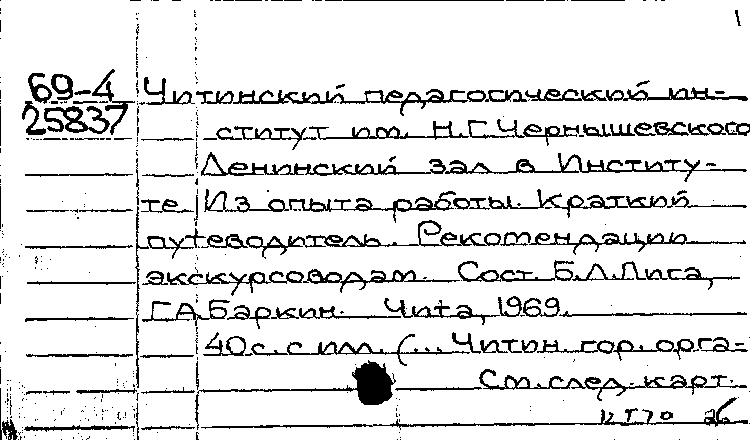 1
69-4 Читинский педагогический ин-
25837 ститут им. Н.Г.Чернышевского
Ленинский зал в Институ-
те Из опыта работы. Краткий
путеводитель. Рекомендации
экскурсоводам. Сост. Б.Л.Лига,
Г.А.Баркин. Чита, 1969.
40с. с илл. (... Читин. гор. орга-
См. след. карт.
12 I 70